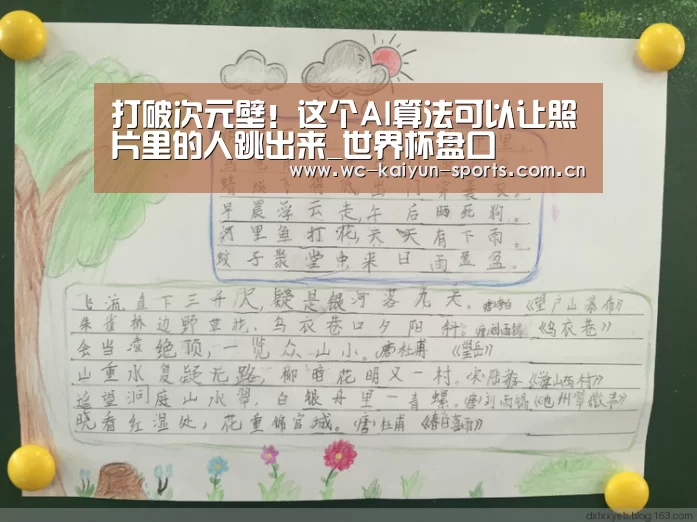 打破次元壁！这个AI算法可以让照
片里的人跳出来_世界杯盘口
www.wc-kaiyun-sports.com.cn
早晨浮云走,午后晒死狗。
河里鱼打花,天天有下雨。
蚊子聚堂中来日雨盈盆。
飞流直下三千尺,疑是银河落九天。《望庐山瀑布》
朱雀桥边野草花,乌衣巷口夕阳斜。《乌衣巷》
会当凌绝顶,一览众山小。唐杜甫《望岳》
山重水复疑无路,柳暗花明又一村。宋陆游《游山西村》
遥望洞庭山水翠,白银丹里一青螺。刘雨锡
晓看红湿处,花重锦官城。唐杜甫《春夜喜雨》
dxlxxyeb.blog.163.com